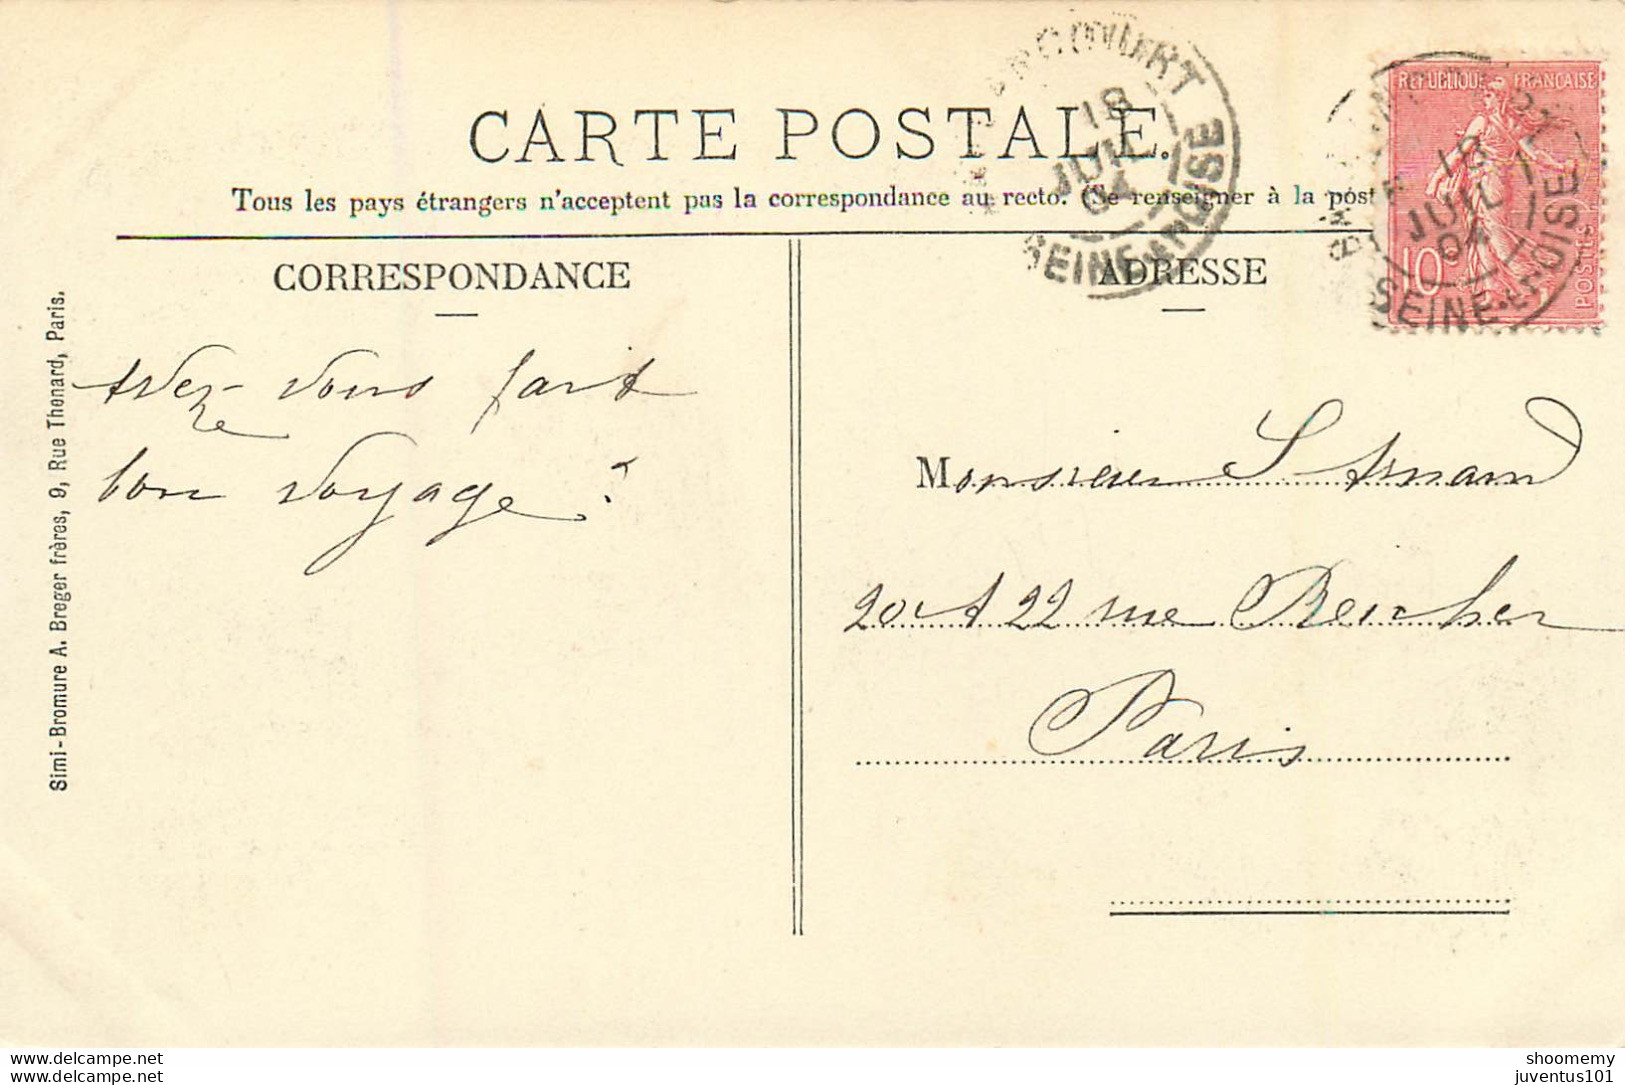 CARTE POSTALE.
Tous les pays étrangers n'acceptent pas la correspondance au recto. (Se renseigner à la post
CORRESPONDANCE
Avez vous fait
bon voyage ?
Simi-Bromure A. Breger frères, 9, Rue Thenard, Paris.
18
JUIL
04
SEINE-ET-OISE
RÉPUBLIQUE FRANÇAISE
10c
POSTES
18
JUIL
04
SEINE-ET-OISE
ADRESSE
Monsieur
20 et 22 rue Reicher
Paris
www.delcampe.net
www.delcampe.net
shoomemy
juventus101